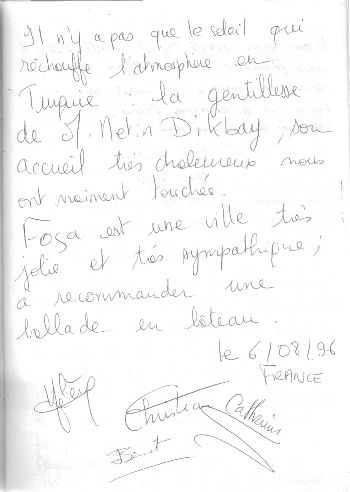 Il n'y a pas que le soleil qui
réchauffe l'atmosphère en
Turquie : la gentillesse
de M. Metin Dikbay, son
accueil très chaleureux nous
ont vraiment touchés.
Foça est une ville très
jolie et très sympathique ;
a recommander une
ballade en bateau.
le 6/08/96
FRANCE
Christian Catherine